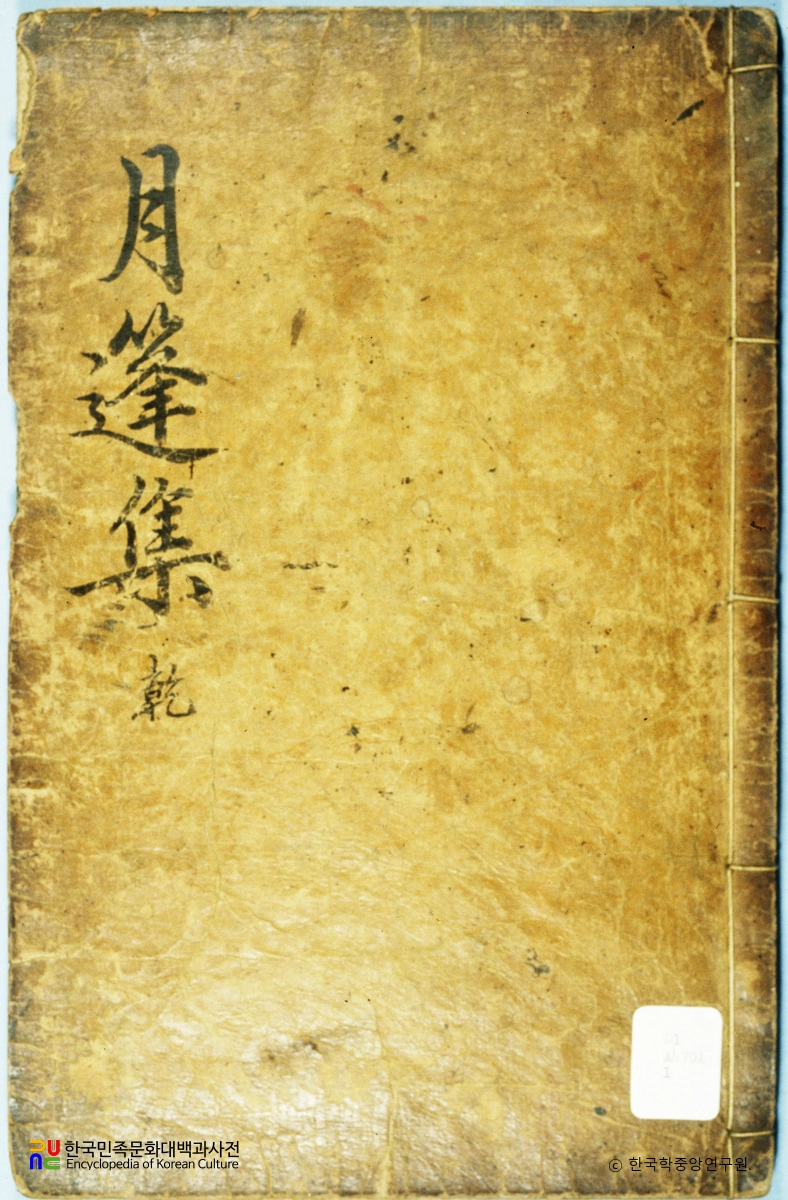 月篷集
乾
1
한국민족문화대백과사전
Encyclopedia of Korean Culture
© 한국학중앙연구원